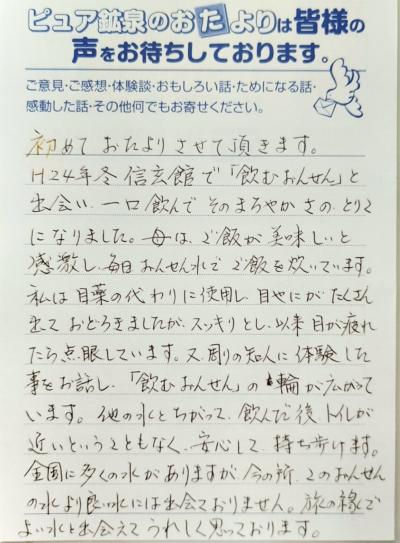 ピュア鉱泉のおたよりは皆様の
声をお待ちしております。
ご意見・ご感想・体験談・おもしろい話・ためになる話・
感動した話・その他何でもお寄せください。
初めて おたよりさせて頂きます。
H24年冬 信玄館で「飲むおんせん」と
出会い、一口飲んで そのまろやかさの、とりこ
になりました。母は、ご飯が美味しいと
感激し、毎日おんせん水でご飯を炊いています。
私は目薬の代わりに使用し、目やにがたくさん
出て おどろきましたが、スッキリとし、以来 目が疲れ
たら点眼しています。又、周りの知人に体験した
事をお話し、「飲むおんせん」の輪が広がって
います。他の水とちがって、飲んだ後 トイレが
近いということもなく、安心して、持ち歩けます。
全国に多くの水がありますが、今の所、このおんせん
の水より良い水には出会ておりません。旅の縁で
よい水と出会えて うれしく思っております。